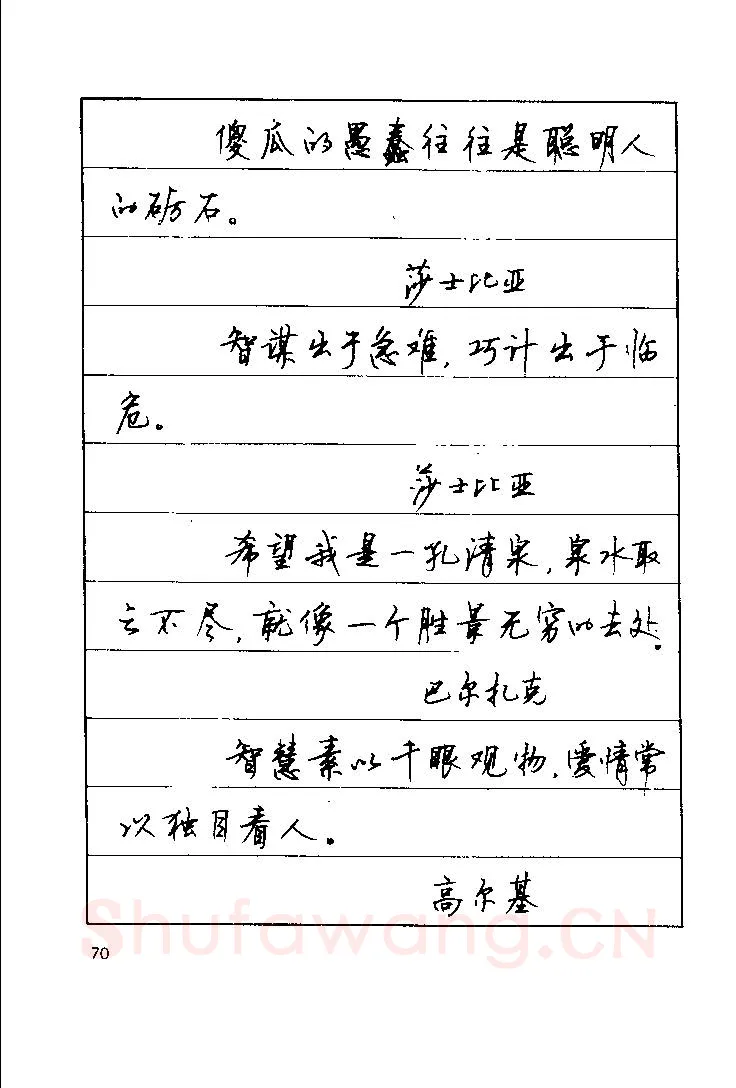 傻瓜的愚蠢往往是聪明人
的砺石。
莎士比亚
智谋出于急难，巧计出于临
危。
莎士比亚
希望我是一孔清泉，泉水取
之不尽，就像一个胜景无穷的去处。
巴尔扎克
智慧素以千眼观物，爱情常
以独目看人。
高尔基
Shufawang.CN
70